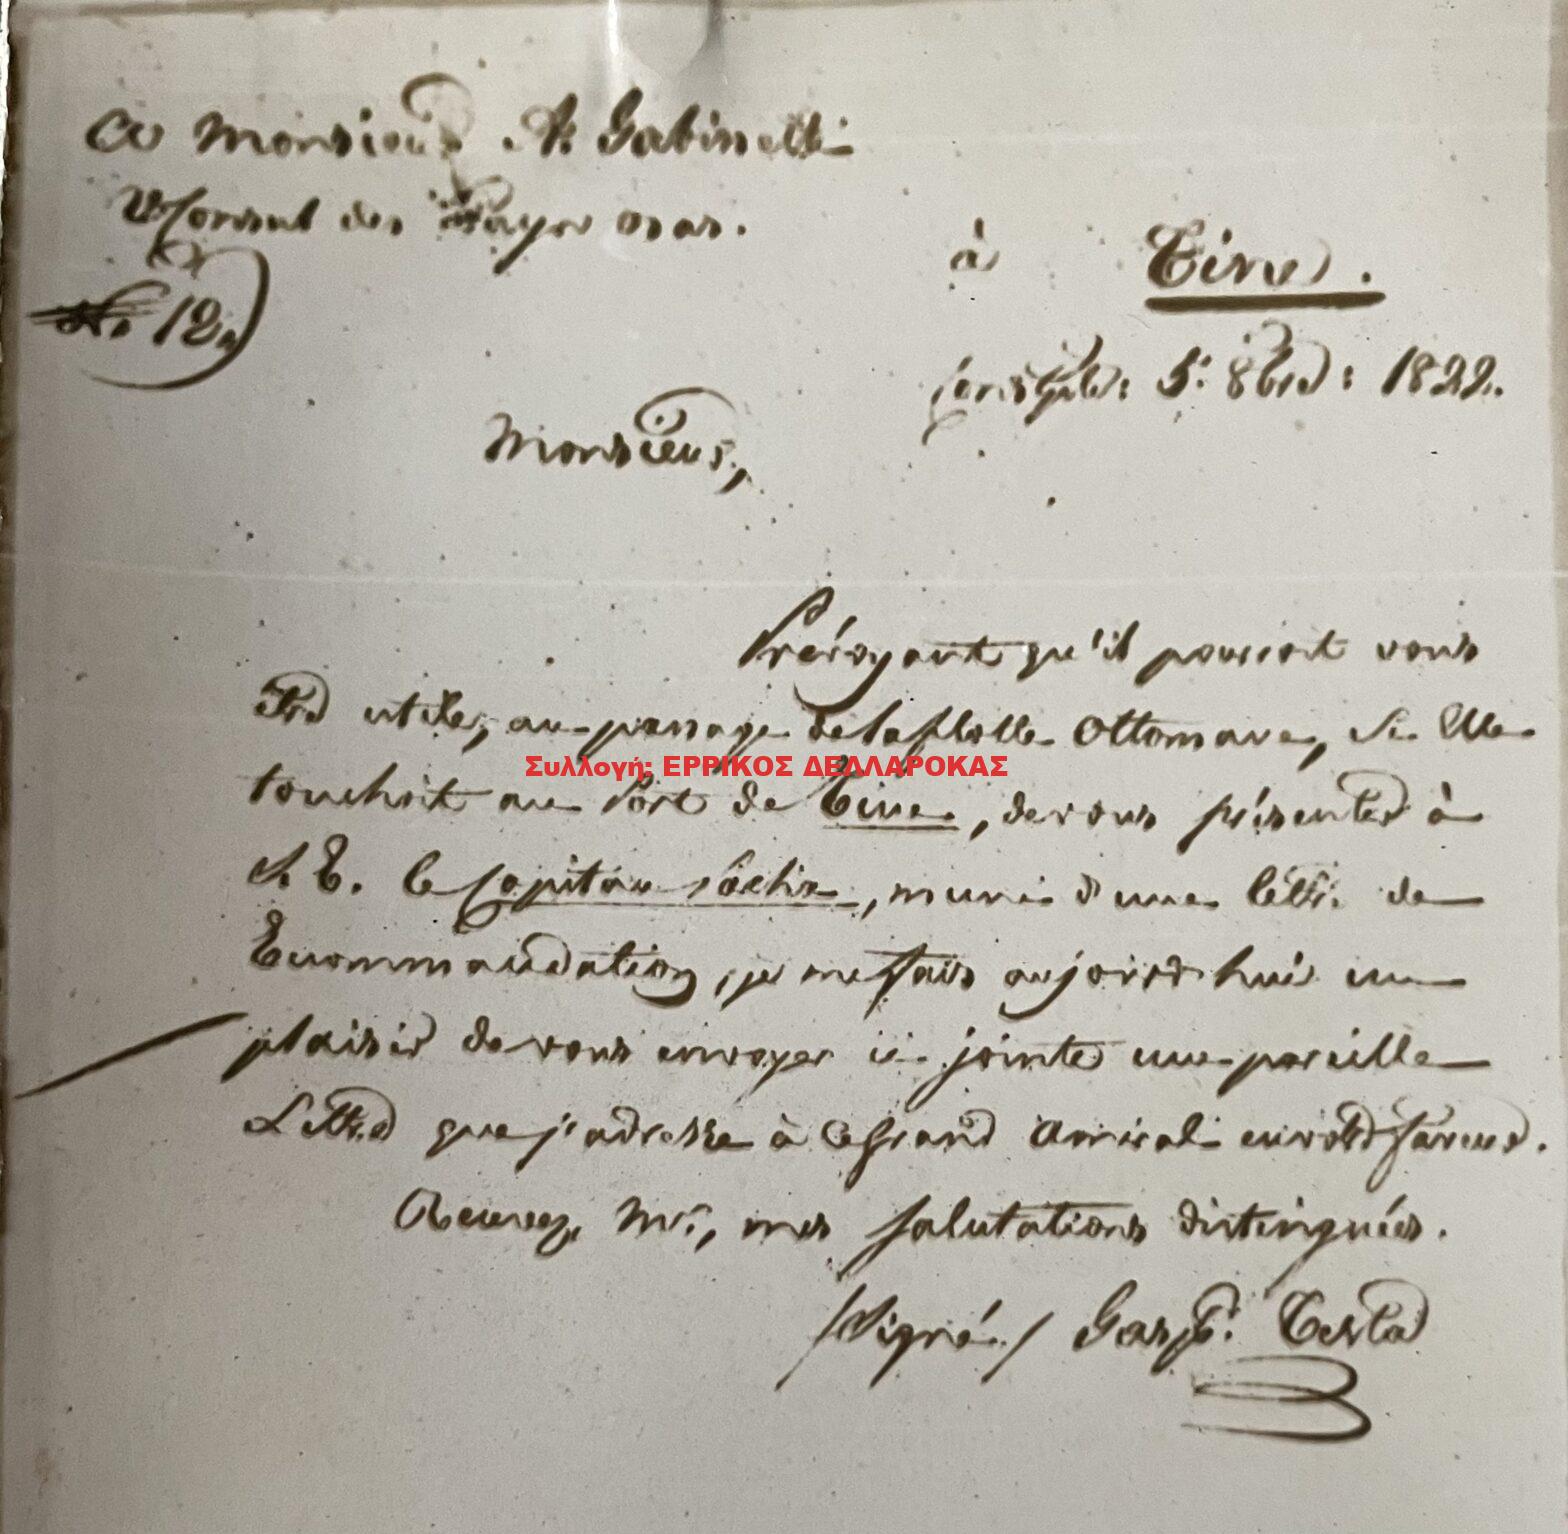 A Monsieur A. Gabinelli
V. Consul des Pays bas.
à Tine.
No. 12.
Constple: 5. 8bre: 1822.
Monsieur,
Prévoyant qu'il pourroit vous
être utile, au passage de la flotte Ottomane, si Elle
Συλλογή: ΕΡΡΙΚΟΣ ΔΕΛΛΑΡΟΚΑΣ
touchoit au Port de Tine, de vous présenter à
S. E. le Capitan Pacha, muni d'une léttre de
Recommandation, je me fais aujourd'hui un
plaisir de vous envoyer ci-jointe une pareille
Lettre que j'adresse à ce Grand Amiral en votre faveur.
Recevez, Mr., mes salutations distinguées.
/Signé/ Gasp. Testa